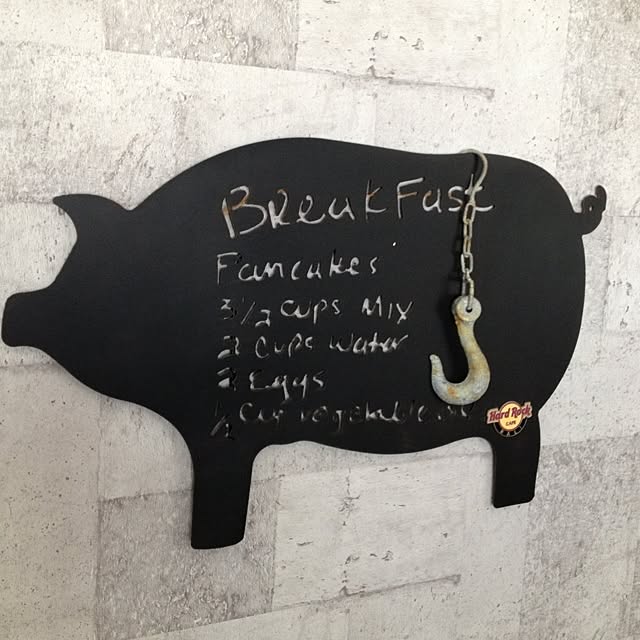 BreakFast
Pancakes
3 1/2 cups Mix
2 Cups Water
2 Eggs
1/2 Cup vegetable
Hard Rock
CAFE